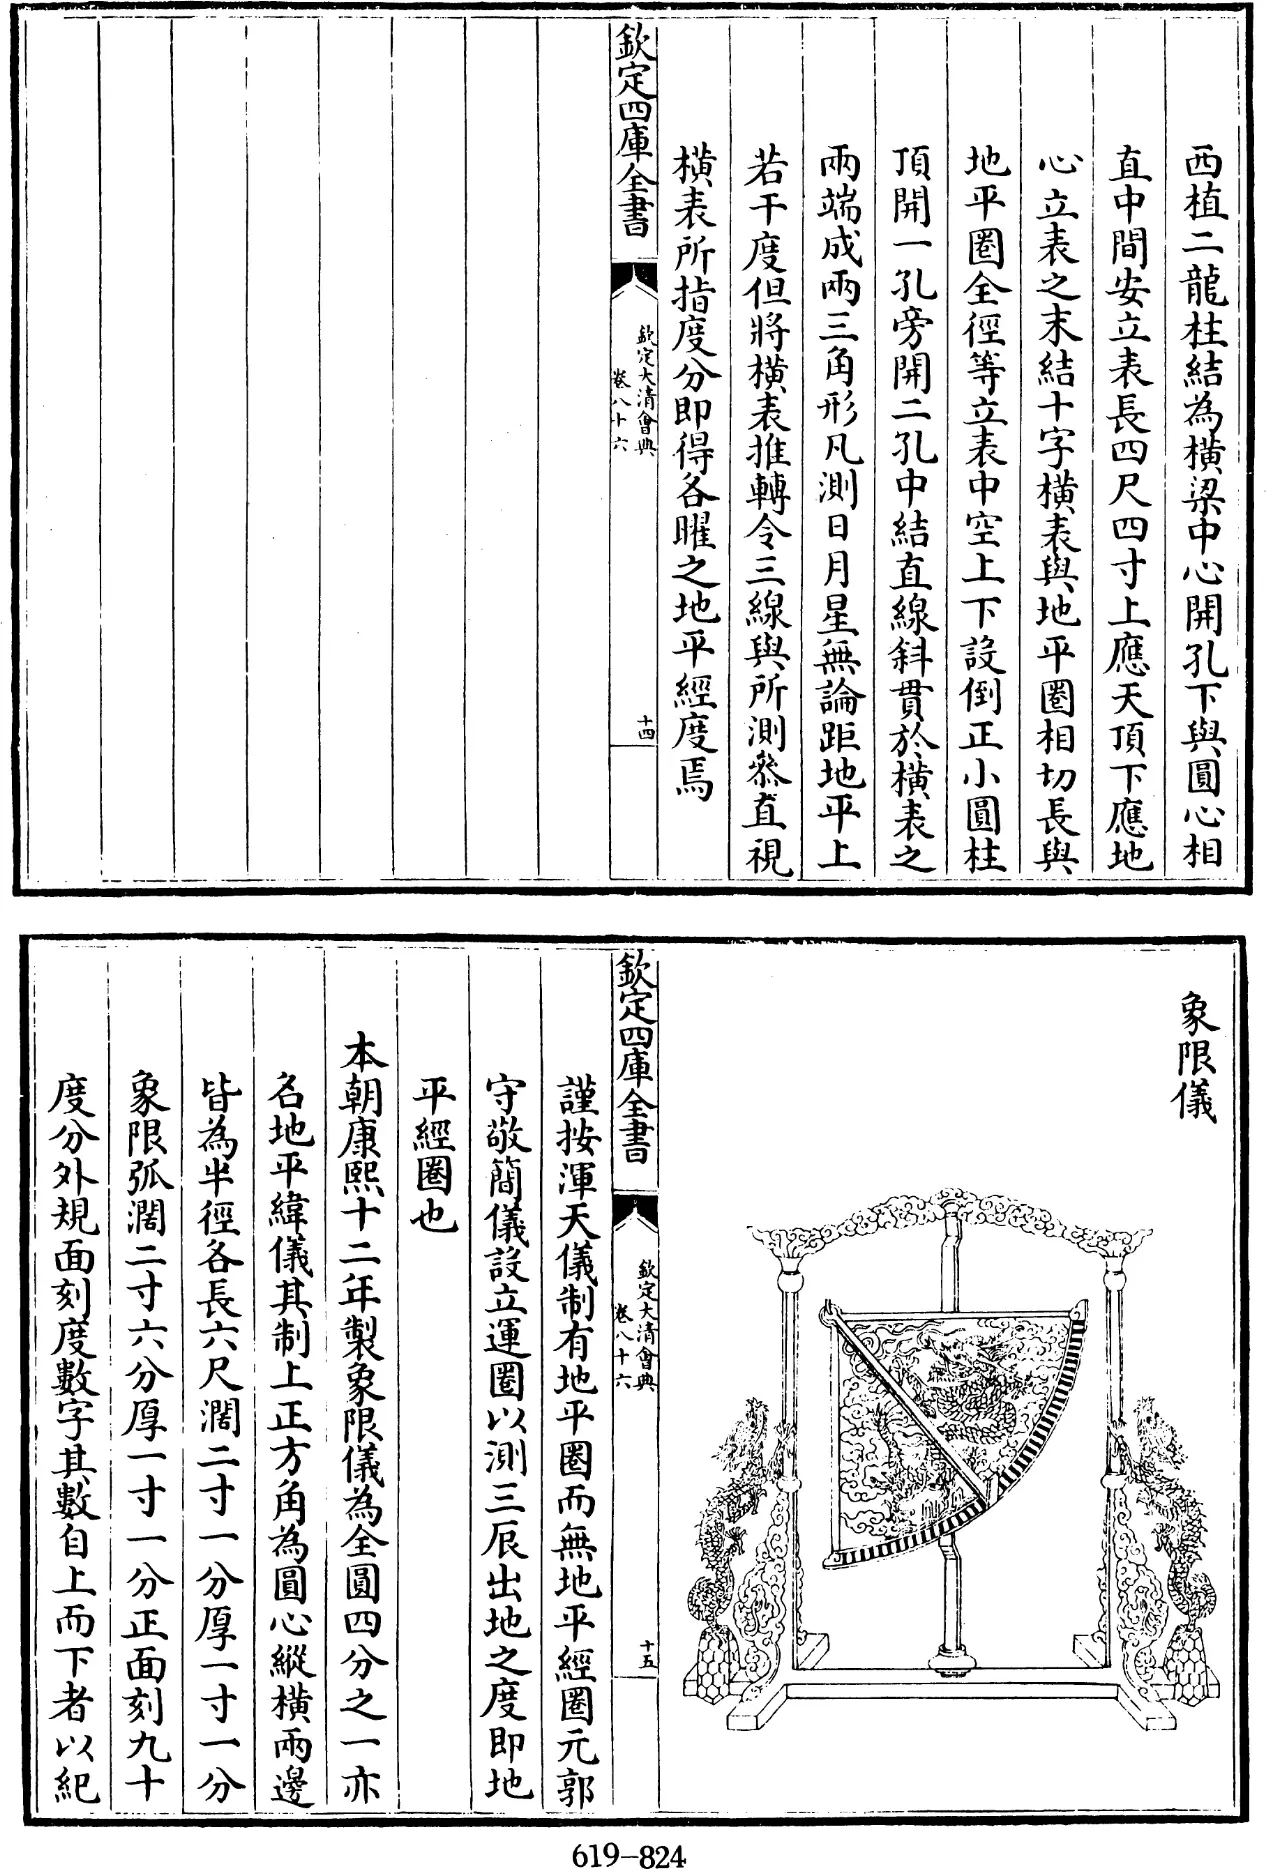 西植二龍柱結為橫梁中心開孔下與圓心相
直中間安立表長四尺四寸上應天頂下應地
心立表之末結十字橫表與地平圈相切長與
地平圈全徑等立表中空上下設倒正小圓柱
頂開一孔旁開二孔中結直線斜貫於橫表之
兩端成兩三角形凡測日月星無論距地平上
若干度但將橫表推轉令三線與所測叅直視
橫表所指度分即得各曜之地平經度焉
欽定四庫全書
欽定大清會典
卷八十六
十四
象限儀
欽定四庫全書
欽定大清會典
卷八十六
十五
謹按渾天儀制有地平圈而無地平經圈元郭
守敬簡儀設立運圈以測三辰出地之度即地
平經圈也
本朝康熙十二年製象限儀為全圓四分之一亦
名地平緯儀其制上正方角為圓心縱橫兩邊
皆為半徑各長六尺濶二寸一分厚一寸一分
象限弧濶二寸六分厚一寸一分正面刻九十
度分外規面刻度數字其數自上而下者以紀
619-824